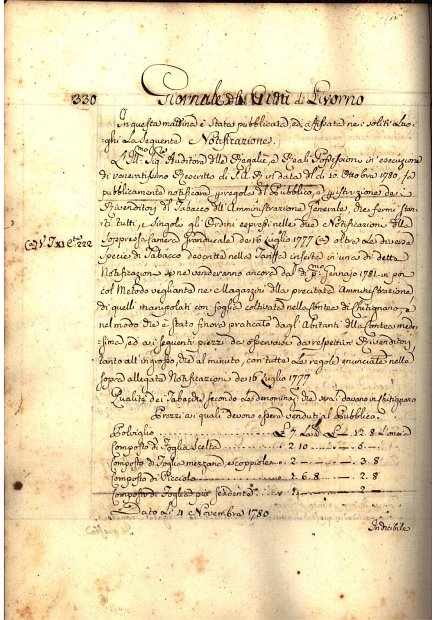 330 Giornale della Città di Livorno
In questa mattina è stata pubblicata, ed affissata ne i soliti Luo-
ghi La seguente Notificazione.
L'Ill.mo Sig. Auditore delle Regalie, e Reali Possessioni in esecuzione
di veneratissimo Rescritto di S.A.R. in data del dì 20. Ottobre 1780, fa
pubblicamente notificare per regola del Pubblico, e istruzione dei
Rivenditori di Tabacco dell'Amministrazione Generale, che fermi stan-
ti tutti, e singoli gli Ordini espressi nelle due Notificazioni della
Soppressa Camera Granducale de 16 Luglio 1777 (a) oltre Le diverse
(a) V. T. XI C.te 222
Specie di Tabacco descritte nella Tariffa inserta in una di dette
Notificazioni se ne venderanno ancora dal dì p.mo Gennaio 1781. in poi
col Metodo vegliante ne Magazzini della precitata Amministrazione
di quelli manipolati con foglia coltivata nella Contea di Chitignano,
nel modo che è stato finora praticato dagl'Abitanti della Contea mede-
sima, ed ai seguenti prezzi da osservarsi da respettivi Rivenditori
tanto all'ingrosso, che al minuto, con tutte Le regole enunciate nella
sopra allegata Notificazione de 16 Luglio 1777.
Qualità dei Tabacchi secondo Le denominazi che quali davano in Chitignano
Prezzi a i quali devono essere venduti al Pubblico.
Polviglio £ 7. La £ £ 12.8 L'oncia
Composto di Foglia Scelta 2.10 5
Composto di Foglia mezzana e coppiola 2 3.8
Composto di Picciola 1.6.8 2.8
Composto di Foglia più scadente 1 2
Dato Li 4 Novembre 1780
Indicibile